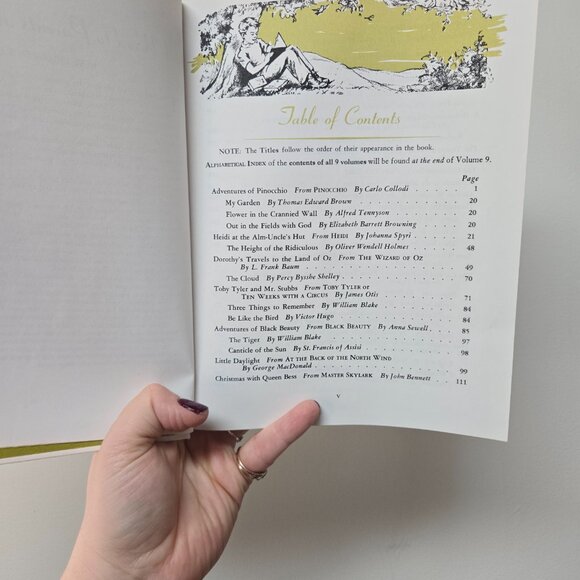 Table of Contents
NOTE: The Titles follow the order of their appearance in the book.
ALPHABETICAL INDEX of the contents of all 9 volumes will be found at the end of Volume 9.
Page
Adventures of Pinocchio From PINOCCHIO By Carlo Collodi . . . . . . 1
My Garden By Thomas Edward Brown . . . . . . . . . . 20
Flower in the Crannied Wall By Alfred Tennyson . . . . . . . 20
Out in the Fields with God By Elizabeth Barrett Browning . . . . . 20
Heidi at the Alm-Uncle's Hut From HEIDI By Johanna Spyri . . . . . 21
The Height of the Ridiculous By Oliver Wendell Holmes . . . . . 48
Dorothy's Travels to the Land of Oz From THE WIZARD OF OZ
By L. Frank Baum . . . . . . . . . . . . . . 49
The Cloud By Percy Bysshe Shelley . . . . . . . . . . 70
Toby Tyler and Mr. Stubbs From TOBY TYLER OR
TEN WEEKS WITH A CIRCUS By James Otis . . . . . . . 71
Three Things to Remember By William Blake . . . . . . . 84
Be Like the Bird By Victor Hugo . . . . . . . . . . 84
Adventures of Black Beauty From BLACK BEAUTY By Anna Sewell . . 85
The Tiger By William Blake . . . . . . . . . . . 97
Canticle of the Sun By St. Francis of Assisi . . . . . . . 98
Little Daylight From AT THE BACK OF THE NORTH WIND
By George MacDonald . . . . . . . . . . . . 99
Christmas with Queen Bess From MASTER SKYLARK By John Bennett . . . . 111
v